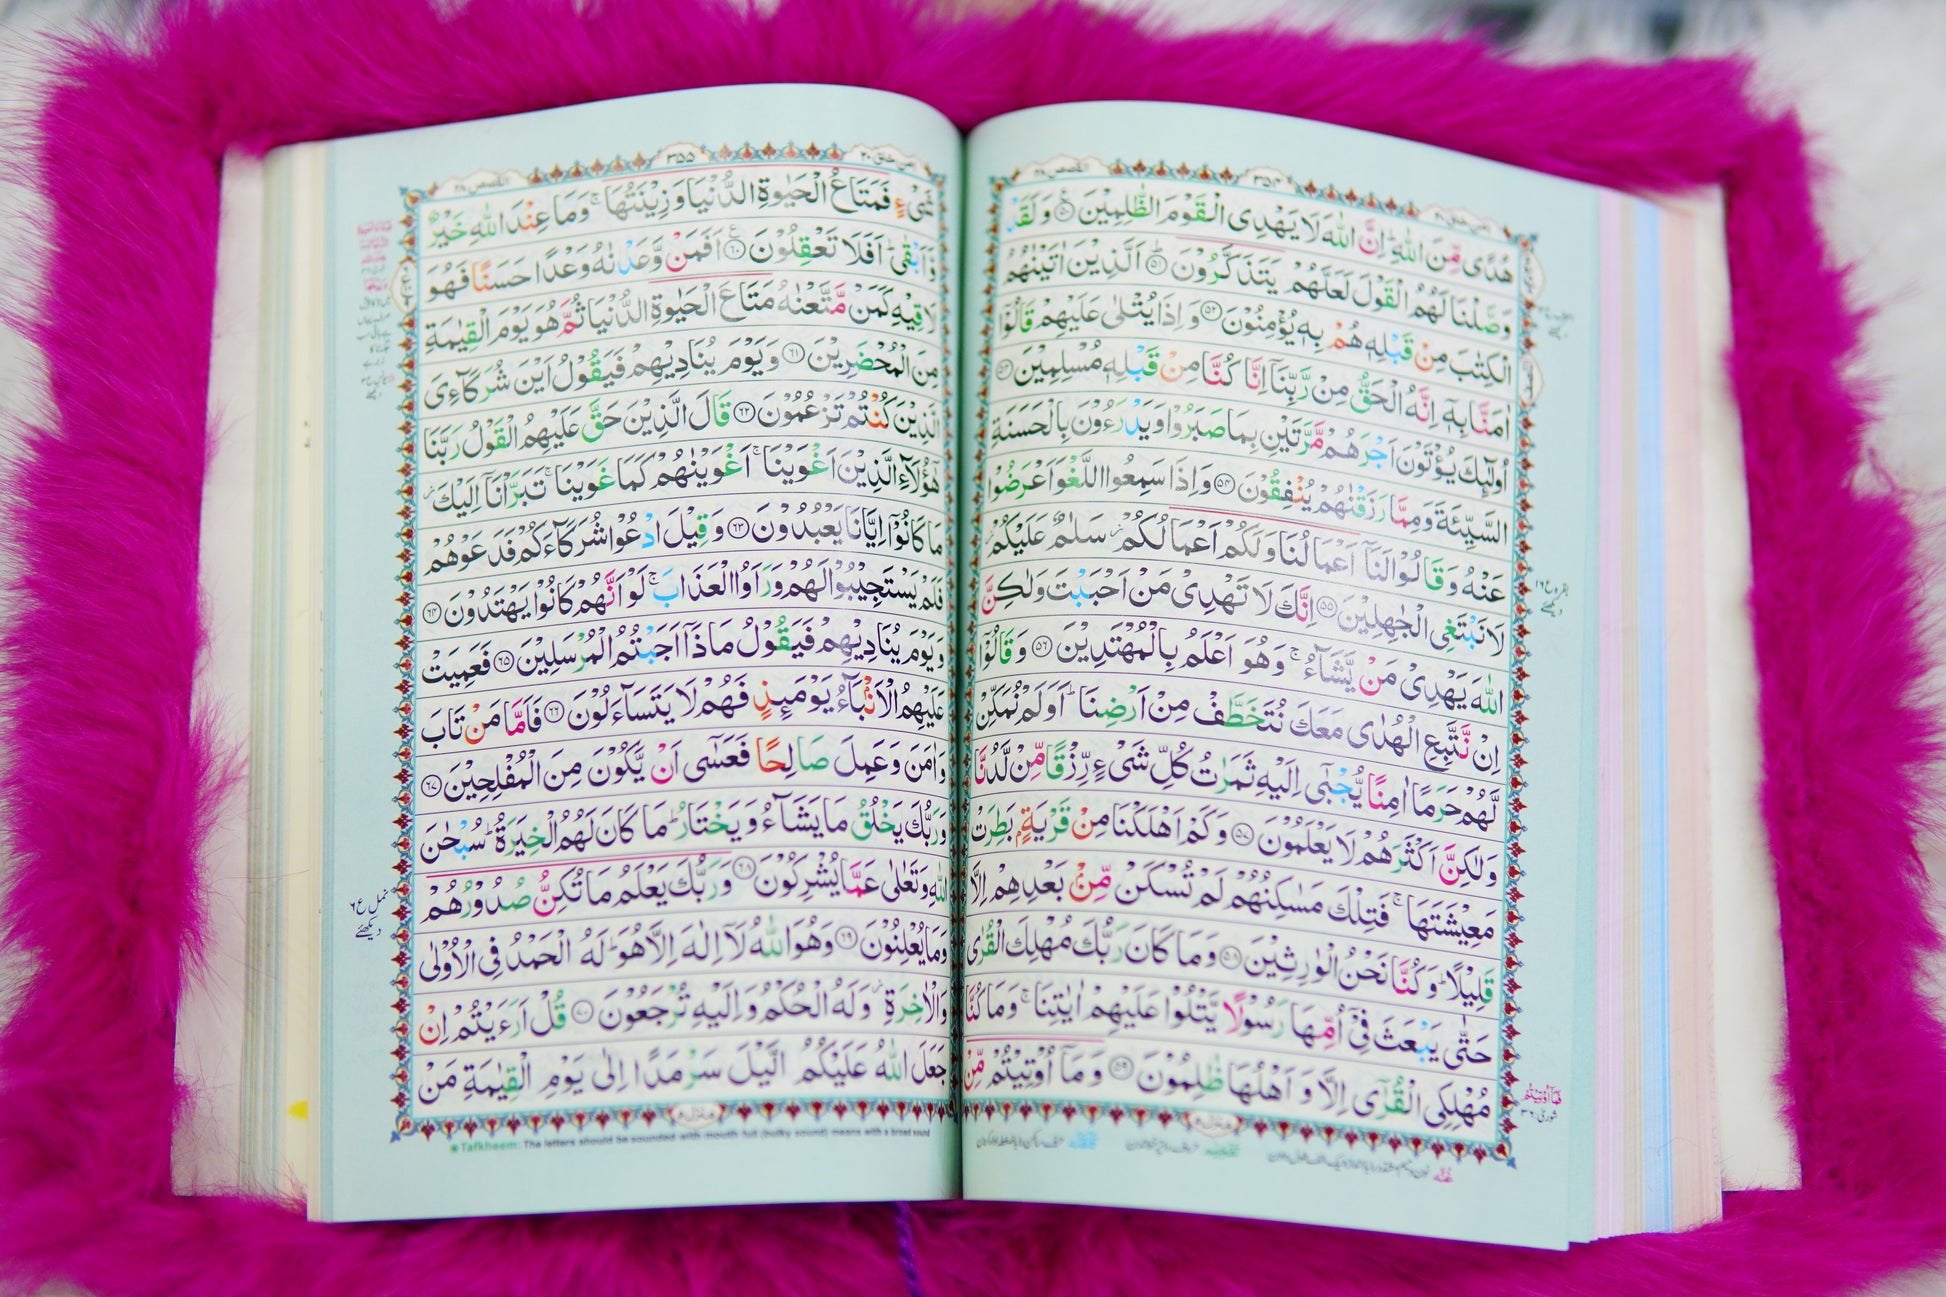 القصص ٢٨
٣٥٤
امن خلق ٢٠
هُدًى مِّنَ اللّٰهِ ؕ اِنَّ اللّٰهَ لَا يَهْدِى الْقَوْمَ الظّٰلِمِيْنَ ۟﴿۵۰﴾ وَلَقَدْ
وَصَّلْنَا لَهُمُ الْقَوْلَ لَعَلَّهُمْ يَتَذَكَّرُوْنَ ؕ﴿۵۱﴾ اَلَّذِيْنَ اٰتَيْنٰهُمُ
الْكِتٰبَ مِنْ قَبْلِهٖ هُمْ بِهٖ يُؤْمِنُوْنَ ﴿۵۲﴾ وَ اِذَا يُتْلٰى عَلَيْهِمْ قَالُوْۤا
اٰمَنَّا بِهٖۤ اِنَّهُ الْحَقُّ مِنْ رَّبِّنَاۤ اِنَّا كُنَّا مِنْ قَبْلِهٖ مُسْلِمِيْنَ ﴿۵۳﴾
اُولٰٓئِكَ يُؤْتَوْنَ اَجْرَهُمْ مَّرَّتَيْنِ بِمَا صَبَرُوْا وَ يَدْرَءُوْنَ بِالْحَسَنَةِ
السَّيِّئَةَ وَ مِمَّا رَزَقْنٰهُمْ يُنْفِقُوْنَ ﴿۵۴﴾ وَ اِذَا سَمِعُوا اللَّغْوَ اَعْرَضُوْا
عَنْهُ وَ قَالُوْا لَنَاۤ اَعْمَالُنَا وَ لَكُمْ اَعْمَالُكُمْ ؗ سَلٰمٌ عَلَيْكُمْ ؗ
لَا نَبْتَغِى الْجٰهِلِيْنَ ﴿۵۵﴾ اِنَّكَ لَا تَهْدِىْ مَنْ اَحْبَبْتَ وَلٰكِنَّ
اللّٰهَ يَهْدِىْ مَنْ يَّشَآءُ ۚ وَهُوَ اَعْلَمُ بِالْمُهْتَدِيْنَ ﴿۵۶﴾ وَ قَالُوْۤا
اِنْ نَّتَّبِعِ الْهُدٰى مَعَكَ نُتَخَطَّفْ مِنْ اَرْضِنَا ؕ اَوَلَمْ نُمَكِّنْ
لَّهُمْ حَرَمًا اٰمِنًا يُّجْبٰٓى اِلَيْهِ ثَمَرٰتُ كُلِّ شَىْءٍ رِّزْقًا مِّنْ لَّدُنَّا
وَلٰكِنَّ اَكْثَرَهُمْ لَا يَعْلَمُوْنَ ﴿۵۷﴾ وَ كَمْ اَهْلَكْنَا مِنْ قَرْيَةٍۭ بَطِرَتْ
مَعِيْشَتَهَا ۚ فَتِلْكَ مَسٰكِنُهُمْ لَمْ تُسْكَنْ مِّنْۢ بَعْدِهِمْ اِلَّا
قَلِيْلًا ؕ وَ كُنَّا نَحْنُ الْوٰرِثِيْنَ ﴿۵۸﴾ وَ مَا كَانَ رَبُّكَ مُهْلِكَ الْقُرٰى
حَتّٰى يَبْعَثَ فِىْۤ اُمِّهَا رَسُوْلًا يَّتْلُوْا عَلَيْهِمْ اٰيٰتِنَا ۚ وَ مَا كُنَّا
مُهْلِكِى الْقُرٰٓى اِلَّا وَ اَهْلُهَا ظٰلِمُوْنَ ﴿۵۹﴾ وَ مَاۤ اُوْتِيْتُمْ مِّنْ
بقره ع ١٦
دیکھئے
فَمَآ اُوْتِيْتُمْ
شوری: ٣٦
القصص ٢٨
٣٥٥
امن خلق ٢٠
شَىْءٍ فَمَتَاعُ الْحَيٰوةِ الدُّنْيَا وَ زِيْنَتُهَا ۚ وَ مَا عِنْدَ اللّٰهِ خَيْرٌ
وَّ اَبْقٰى ؕ اَفَلَا تَعْقِلُوْنَ ﴿۶۰﴾ اَفَمَنْ وَّعَدْنٰهُ وَعْدًا حَسَنًا فَهُوَ
لَاقِيْهِ كَمَنْ مَّتَّعْنٰهُ مَتَاعَ الْحَيٰوةِ الدُّنْيَا ثُمَّ هُوَ يَوْمَ الْقِيٰمَةِ
مِنَ الْمُحْضَرِيْنَ ﴿۶۱﴾ وَ يَوْمَ يُنَادِيْهِمْ فَيَقُوْلُ اَيْنَ شُرَكَآءِىَ
الَّذِيْنَ كُنْتُمْ تَزْعُمُوْنَ ﴿۶۲﴾ قَالَ الَّذِيْنَ حَقَّ عَلَيْهِمُ الْقَوْلُ رَبَّنَا
هٰٓؤُلَآءِ الَّذِيْنَ اَغْوَيْنَا ۚ اَغْوَيْنٰهُمْ كَمَا غَوَيْنَا ۚ تَبَرَّاْنَاۤ اِلَيْكَ ؗ
مَا كَانُوْۤا اِيَّانَا يَعْبُدُوْنَ ﴿۶۳﴾ وَ قِيْلَ ادْعُوْا شُرَكَآءَكُمْ فَدَعَوْهُمْ
فَلَمْ يَسْتَجِيْبُوْا لَهُمْ وَ رَاَوُا الْعَذَابَ ۚ لَوْ اَنَّهُمْ كَانُوْا يَهْتَدُوْنَ ﴿۶۴﴾
وَ يَوْمَ يُنَادِيْهِمْ فَيَقُوْلُ مَاذَاۤ اَجَبْتُمُ الْمُرْسَلِيْنَ ﴿۶۵﴾ فَعَمِيَتْ
عَلَيْهِمُ الْاَنْۢبَآءُ يَوْمَئِذٍ فَهُمْ لَا يَتَسَآءَلُوْنَ ﴿۶۶﴾ فَاَمَّا مَنْ تَابَ
وَ اٰمَنَ وَ عَمِلَ صَالِحًا فَعَسٰٓى اَنْ يَّكُوْنَ مِنَ الْمُفْلِحِيْنَ ﴿۶۷﴾
وَ رَبُّكَ يَخْلُقُ مَا يَشَآءُ وَ يَخْتَارُ ؕ مَا كَانَ لَهُمُ الْخِيَرَةُ ؕ سُبْحٰنَ
اللّٰهِ وَ تَعٰلٰى عَمَّا يُشْرِكُوْنَ ﴿۶۸﴾ وَ رَبُّكَ يَعْلَمُ مَا تُكِنُّ صُدُوْرُهُمْ
وَ مَا يُعْلِنُوْنَ ﴿۶۹﴾ وَ هُوَ اللّٰهُ لَاۤ اِلٰهَ اِلَّا هُوَ ؕ لَهُ الْحَمْدُ فِى الْاُوْلٰى
وَ الْاٰخِرَةِ ؗ وَ لَهُ الْحُكْمُ وَ اِلَيْهِ تُرْجَعُوْنَ ﴿۷۰﴾ قُلْ اَرَءَيْتُمْ اِنْ
جَعَلَ اللّٰهُ عَلَيْكُمُ الَّيْلَ سَرْمَدًا اِلٰى يَوْمِ الْقِيٰمَةِ مَنْ
نمل ع ٦
دیکھئے
Tafkheem: The letters should be sounded with mouth full (bulky sound) means with a broad sound